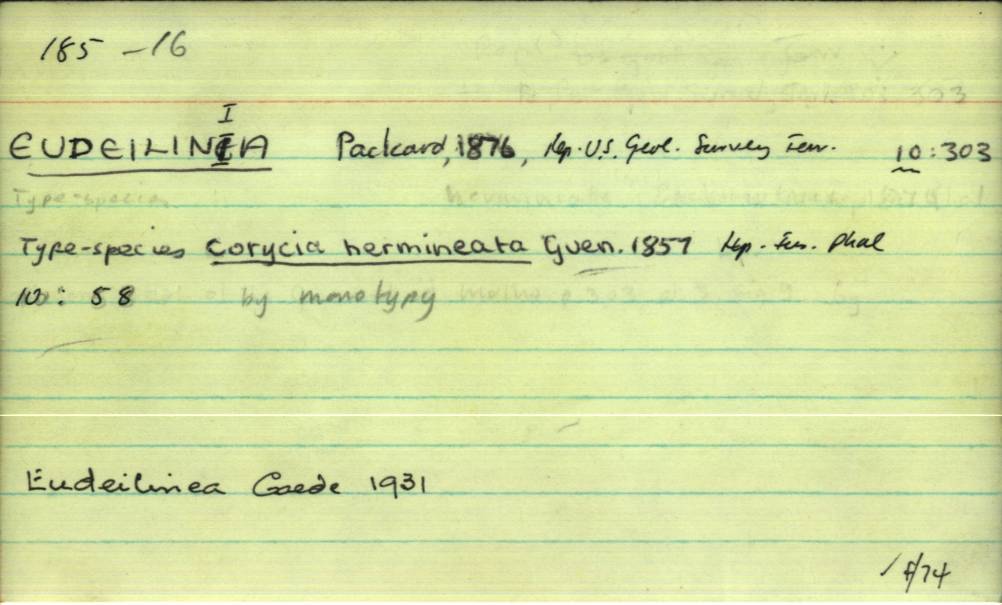 185-16
I
EUDEILINEA Packard, 1876, Rep. U.S. Geol. Survey Terr. 10:303
Type-species Corycia hermineata Guen. 1857 Lep. Phal
10: 58 by monotypy
Eudeilinea Gaede 1931
/74